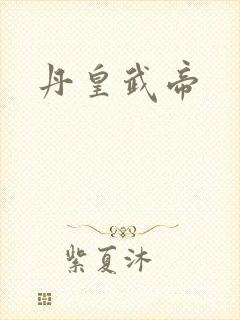 丹皇武帝
紫夏沐